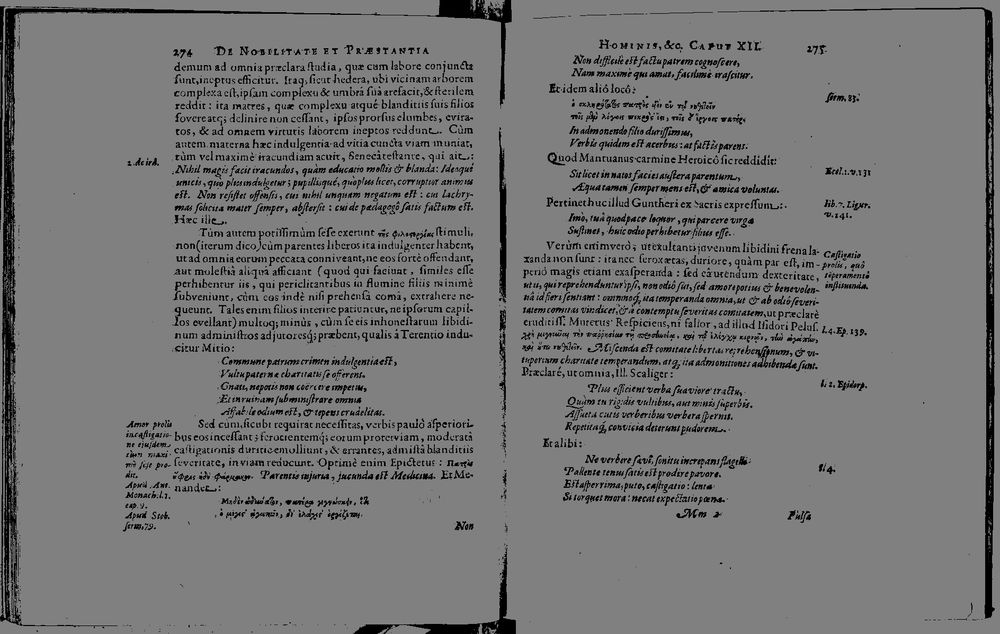 274 DE NOBILITATE ET PRÆSTANTIA
demum ad omnia præclara studia, quæ cum labore conjuncta
sunt, ineptus efficitur. Itaq; sicut hedera, ubi vicinam arborem
complexa est, ipsam complexu & umbrâ suâ arefacit, & sterilem
reddit: ita matres, quæ complexu atque blanditiis suis filios
fovere atq; delinire non cessant, ipsos prorsus elumbes, evira-
tos, & ad omnem virtutis laborem ineptos reddunt. Cùm
autem materna hæc indulgentia ad vitia cuncta viam muniat,
tùm vel maximè iracundiam acuit, Senecâ testante, qui ait:
2. de irâ.
Nihil magis facit iracundos, quàm educatio mollis & blanda: Ideoque
unicis, quo plus indulgetur; pupillisque, quo plus licet, corruptior animus
est. Non resistet offensis, cui nihil unquam negatum est: cui lachry-
mas solicita mater semper abstersit: cui de pædagogo satis factum est.
Hæc ille.
Tùm autem potissimùm sese exerunt τῆς φιλοστοργίας stimuli,
non (iterum dico) cùm parentes liberos ita indulgenter habent,
ut ad omnia eorum peccata conniveant, ne eos fortè offendant,
aut molestiâ aliquâ afficiant (quod qui faciunt, similes esse
perhibentur iis, qui periclitantibus in flumine filiis minimè
subveniunt, cùm eos inde nisi prehensâ comâ, extrahere ne-
queunt. Tales enim filios interire patiuntur, ne ipsorum capil-
los evellant) multoq; minùs, cùm se eis inhonestarum libidi-
num administros adjutoresq; præbent, qualis à Terentio indu-
citur Mitio:
Commune patrum crimen indulgentia est,
Vultu paternæ charitatis se offerent.
Gnati, nepotis non coërcere impetus,
Et in ruinam subministrare omnia
Affabile odium est, & tepens crudelitas.
Sed cùm, sicubi requirat necessitas, verbis paulò asperiori-
bus eos incessant; ferocientemq; eorum proterviam, moderatâ
castigationis duritie emolliunt, & errantes, admistâ blanditiis
severitate, in viam reducunt. Optimè enim Epictetus: Πατρὸς
ὕβρις ἡδὺ φάρμακον. Parentis injuria, jucunda est Medicina. Et Me-
nander:
Amor prolis
in castigatio-
ne ejusdem
tùm maxi-
mè sese pro-
dit.
Apud Ant.
Monach. l. 2.
cap. 9.
Apud Stob.
serm. 79.
Non
HOMINIS, &c. CAPUT XII. 275
Non difficile est factu patrem cognoscere,
Nam maximè qui amat, facilimè irascitur.
Et idem aliô locô:
serm. 83.
In admonendo filio durissimus,
Verbis quidem est acerbus: at factis parens.
Quod Mantuanus carmine Heroicô sic reddidit:
Sit licet in natos facies austera parentum,
Æqua tamen semper mens est, & amica voluntas.
Ecl. 1. v. 131
Pertinet huc illud Guntheri ex Sacris expressum:
lib. 7. Ligur.
v. 141.
Imò, tuâ quod pace loquor, qui parcere virgæ
Sustinet, huic odio perhibetur filius esse.
Verùm enimverò; ut exultanti juvenum libidini frena la-
xanda non sunt: ita nec feroxætas, duriore, quàm par est, im-
perio magis etiam exasperanda: sed cavendum dexteritate,
ut ii, qui reprehenduntur ipsi, non odiô sui, sed amore potius & benevolen-
tiâ id fieri sentiant: omninoq; ita temperanda omnia, ut & ab odiô severi-
tatem comitas vindicet, & à contemptu severitas comitatem, ut præclarè
eruditiss. Muretus. Respiciens, ni fallor, ad illud Isidori Pelus.
Castigatio
prolis, quô
temperamentô
instituenda.
l. 4. Ep. 139.
Miscenda est comitate libertas reprehensionum, & vi-
tuperium charitate temperandum, atq; ita admonitiones adhibendæ sunt.
Præclarè, ut omnia, Ill. Scaliger:
l. 2. Epidorp.
Plus efficient verba suaviore tractu,
Quàm tu rigidis vultibus, aut minis superbis.
Assueta cutis verberibus verbera spernit.
Repetitaq; convicia deterunt pudorem.
Et alibi:
Ne verbere sævi, sonitu increpans flagelli
Pallente tenus satis est prodire pavore.
Est asperrima, puto, castigatio: lenta
Si torquet mora: necat expectatio pœnæ.
Mm 2 Pulsa